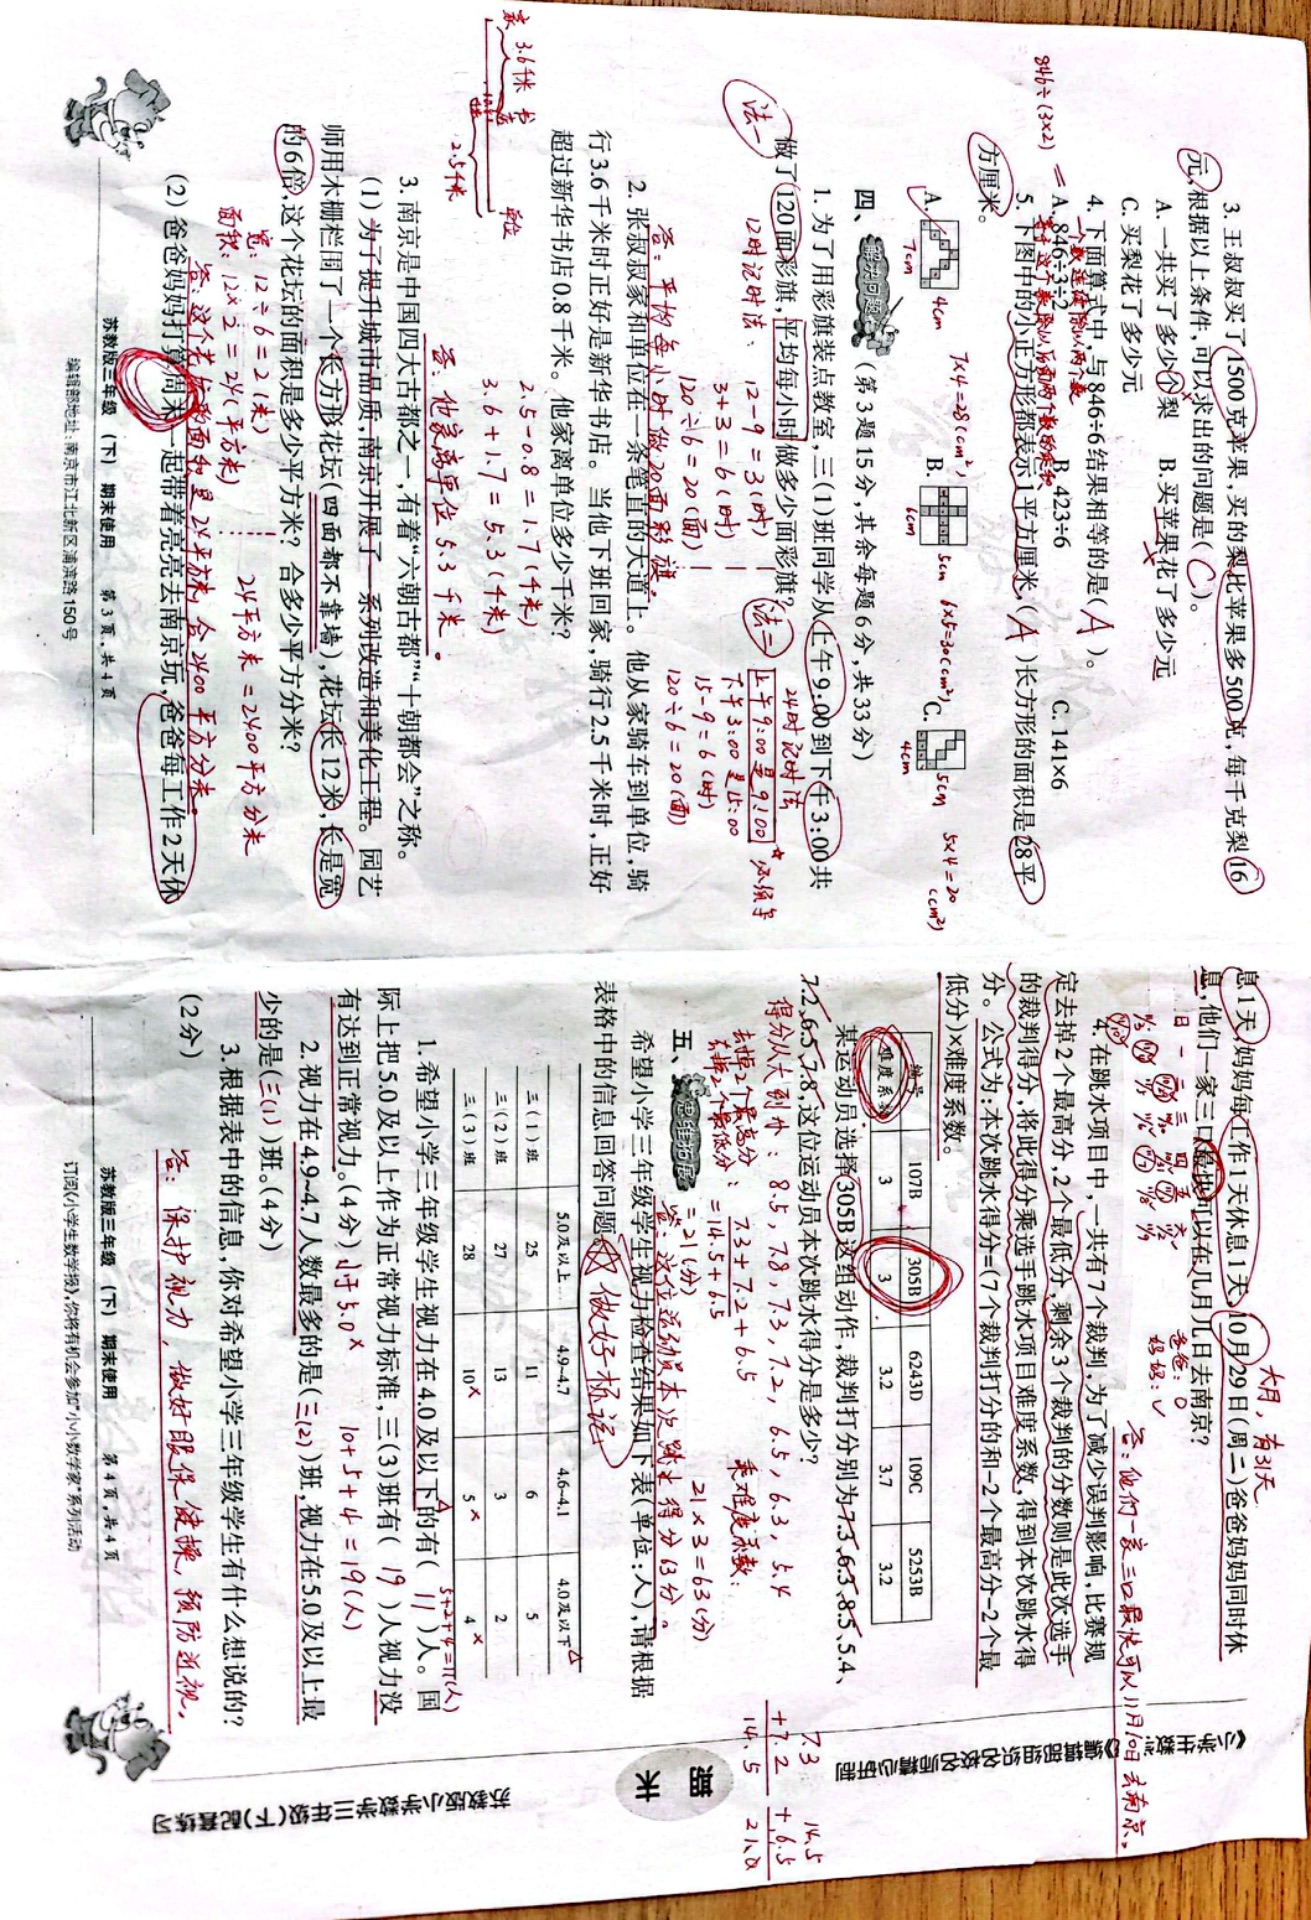 3. 王叔叔买了1500克苹果,买的梨比苹果多500克,每千克梨16
元,根据以上条件,可以求出的问题是(C)。
A. 一共买了多少个梨 B. 买苹果花了多少元
C. 买梨花了多少元
4. 下面算式中,与846÷6结果相等的是(A)。
846÷(3×2) = A. 846÷3÷2 B. 423÷6 C. 141×6
5. 下图中的小正方形都表示1平方厘米,(A)长方形的面积是28平
方厘米。
7×4=28(cm²) 6×5=30(cm²) 5×4=20(cm²)
A. 7cm 4cm B. 6cm 5cm C. 4cm 5cm
四、解决问题(第3题15分,其余每题6分,共33分)
1. 为了用彩旗装点教室,三(1)班同学从上午9:00到下午3:00共
做了120面彩旗,平均每小时做多少面彩旗?
法一
12时记时法:
12-9=3(时)
3+3=6(时)
120÷6=20(面)
法二
24时记时法
上午9:00是9:00
下午3:00是15:00
15-9=6(时)
120÷6=20(面)
答:平均每小时做20面彩旗。
2. 张叔叔家和单位在一条笔直的大道上。他从家骑车到单位,骑
行3.6千米时正好是新华书店。当他下班回家,骑行2.5千米时,正好
超过新华书店0.8千米。他家离单位多少千米?
家 3.6千米 书店 单位
2.5千米
2.5-0.8=1.7(千米)
3.6+1.7=5.3(千米)
答:他家离单位5.3千米。
3. 南京是中国四大古都之一,有着“六朝古都”“十朝都会”之称。
(1) 为了提升城市品质,南京开展了一系列改造和美化工程。园艺
师用木栅栏围了一个长方形花坛(四面都不靠墙),花坛长12米,长是宽
的6倍,这个花坛的面积是多少平方米?合多少平方分米?
宽:12÷6=2(米)
面积:12×2=24(平方米)
24平方米=2400平方分米
答:这个花坛的面积是24平方米,合2400平方分米。
(2) 爸爸妈妈打算周末一起带着亮亮去南京玩,爸爸每工作2天休
苏教版三年级(下) 期末使用 第3页,共4页
编辑部地址:南京市江北新区浦滨路150号
大月,有31天
息1天,妈妈每工作1天休息1天,10月29日(周二)爸爸妈妈同时休
息,他们一家三口最快可以在几月几日去南京?
日 一 二 三 四 五 六
爸爸:O
妈妈:√
答:他们一家三口最快可以11月10日去南京。
4. 在跳水项目中,一共有7个裁判,为了减少误判影响,比赛规
定去掉2个最高分,2个最低分,剩余3个裁判的分数则是此次选手
的裁判得分,将此得分乘选手跳水项目难度系数,得到本次跳水得
分。公式为:本次跳水得分=(7个裁判打分的和-2个最高分-2个最
低分)×难度系数。
编号 107B 305B 6243D 109C 5253B
难度系数 3 3 3.2 3.7 3.2
某运动员选择305B这组动作,裁判打分别为7.3、6.3、8.5、5.4、
7.2、6.5、7.8,这位运动员本次跳水得分是多少?
得分从大到小:8.5,7.8,7.3,7.2,6.5,6.3,5.4
去掉2个最高分
去掉2个最低分:
7.3+7.2+6.5
=14.5+6.5
=21(分)
乘难度系数:
21×3=63(分)
答:这位运动员本次跳水得分63分。
7.3
+7.2
14.5
14.5
+6.5
21.0
五、思维拓展
希望小学三年级学生视力检查结果如下表(单位:人),请根据
表格中的信息回答问题。做好标记
5.0及以上 4.9~4.7 4.6~4.1 4.0及以下
三(1)班 25 11 6 5
三(2)班 27 13 3 2
三(3)班 28 10 5 4
5+2+4=11(人)
1. 希望小学三年级学生视力在4.0及以下的有(11)人。国
际上把5.0及以上作为正常视力标准,三(3)班有(19)人视力没
有达到正常视力。(4分) 小于5.0 10+5+4=19(人)
2. 视力在4.9~4.7人数最多的是(三(2))班,视力在5.0及以上最
少的是(三(1))班。(4分)
3. 根据表中的信息,你对希望小学三年级学生有什么想说的?
(2分)
答:保护视力,做好眼保健操,预防近视。
苏教版三年级(下) 期末使用 第4页,共4页
订阅《小学生数学报》,你将有机会参加“小小数学家”系列活动
编辑部组织名校名师精心研制
期末
苏教版小学数学三年级(下)配套练习